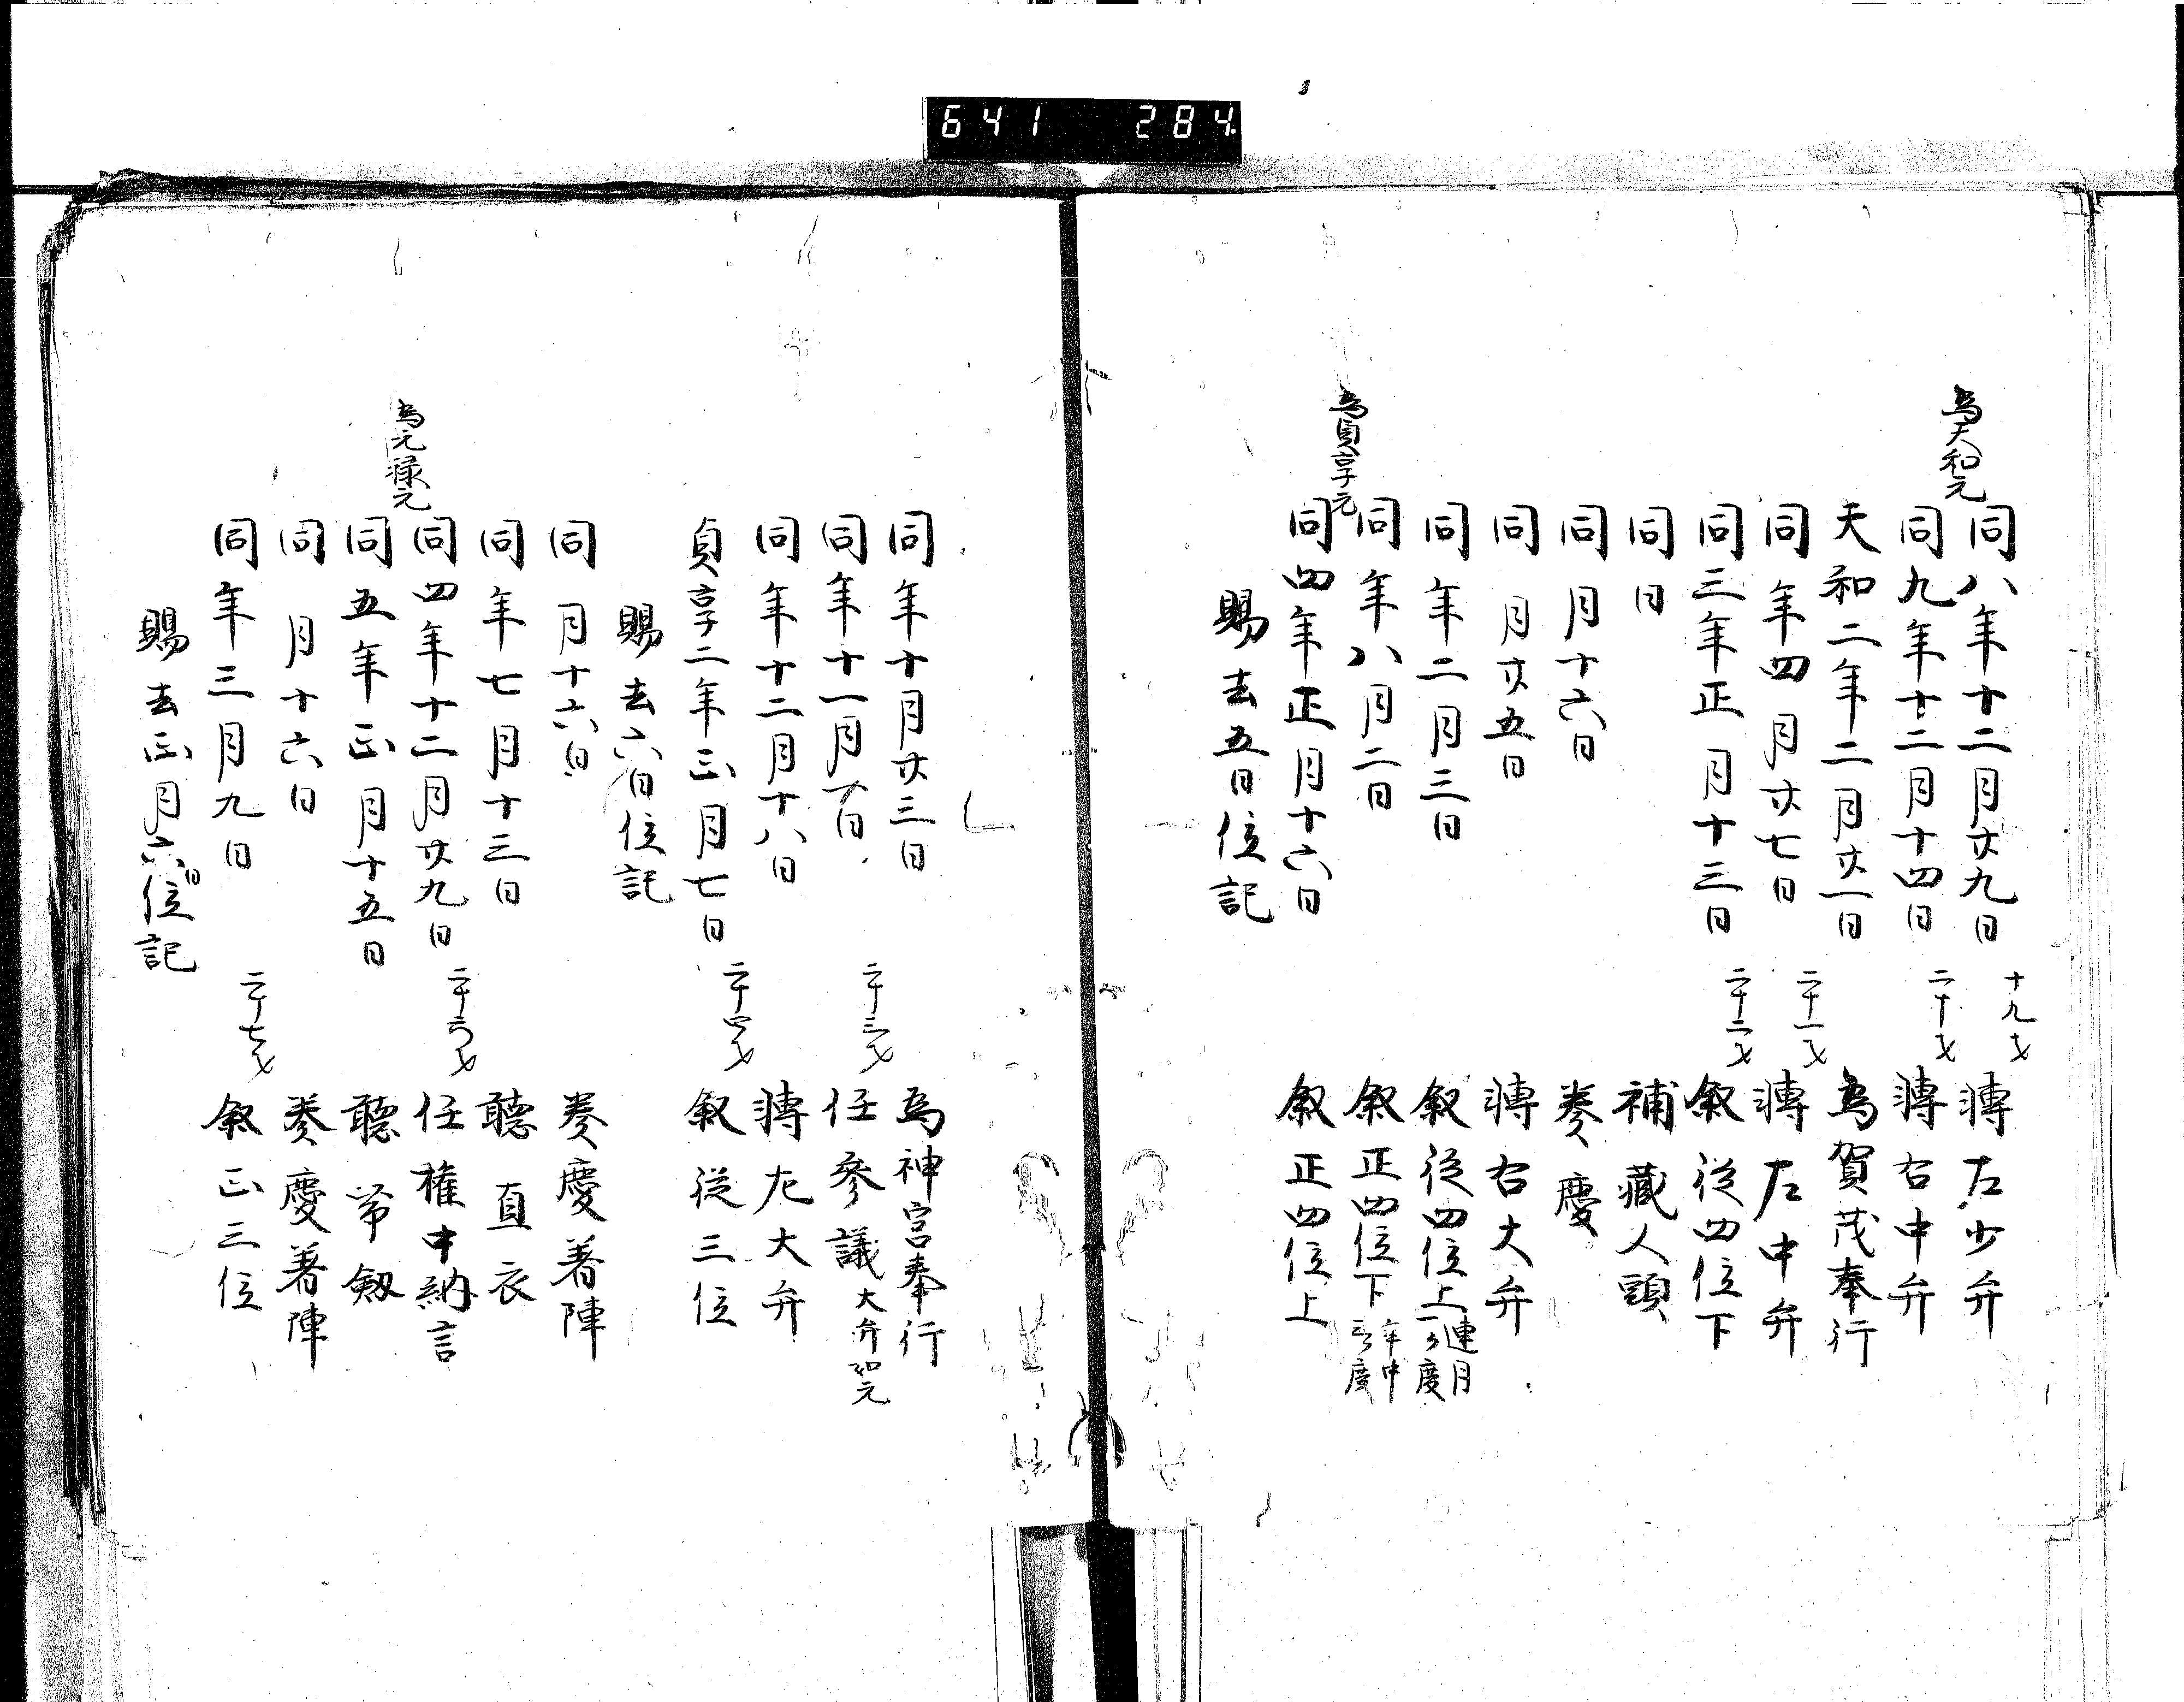 641 284
同八年十二月廿九日 十九才 轉左少弁
為天和元
同九年十二月十四日 二十才 轉右中弁
天和二年二月廿一日 為賀茂奉行
同年四月廿七日 二十一才 轉左中弁
同三年正月十三日 二十二才 叙従四位下
同日 補藏人頭
同月十六日 奏慶
同月廿五日 轉右大弁
同年二月三日 叙従四位上 連月二ヶ度
同年八月二日 叙正四位下 年中三ヶ度
為貞享元
同四年正月十六日 叙正四位上
賜去五日位記
同年十月廿三日 為神宮奉行
同年十一月一日 二十三才 任參議 大弁如元
同年十二月十八日 轉左大弁
貞享二年正月七日 二十四才 叙従三位
賜去六日位記
同月十六日 奏慶著陣
同年七月十三日 聴直衣
同四年十二月廿九日 二十六才 任権中納言
為元禄元
同五年正月十五日 聴帯劔
同月十六日 奏慶著陣
同年三月九日 二十七才 叙正三位
賜去正月六日位記